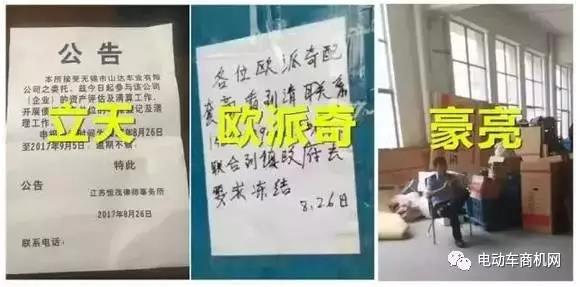 公告
本所接受无锡市山达车业有限
公司之委托,兹今日起参与该公司
(企业)的资产评估及清算工作。
开展债
理工作。
8月26日
至2017年9月5日,逾期不候。
特此
公告
江苏恒茂律师事务所
2017年8月26日
联系电话:
立天
各位欧派奇配
套商看到请联系
联合到镇政府去
要求冻结
8.26日
欧派奇
豪亮
电动车商机网